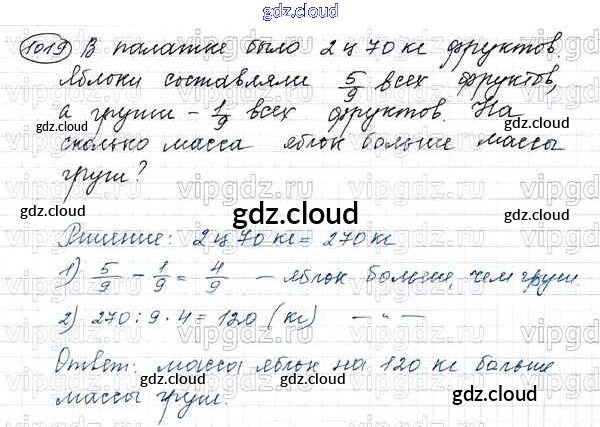 gdz.cloud
1019 В палатке было 2 ц 70 кг фруктов
Яблоки составляли 5/9 всех фруктов,
а груши - 1/9 всех фруктов. На
сколько масса яблок больше массы
груш?
gdz.cloud
gdz.cloud
gdz.cloud
gdz.cloud
gdz.cloud
Решение: 2 ц 70 кг = 270 кг
1) 5/9 - 1/9 = 4/9 - яблок больше, чем груш.
2) 270 : 9 · 4 = 120 (кг) — " —
Ответ: масса яблок на 120 кг больше
массы груш.
gdz.cloud
gdz.cloud
gdz.cloud
gdz.cloud
vipgdz.ru
vipgdz.ru
vipgdz.ru